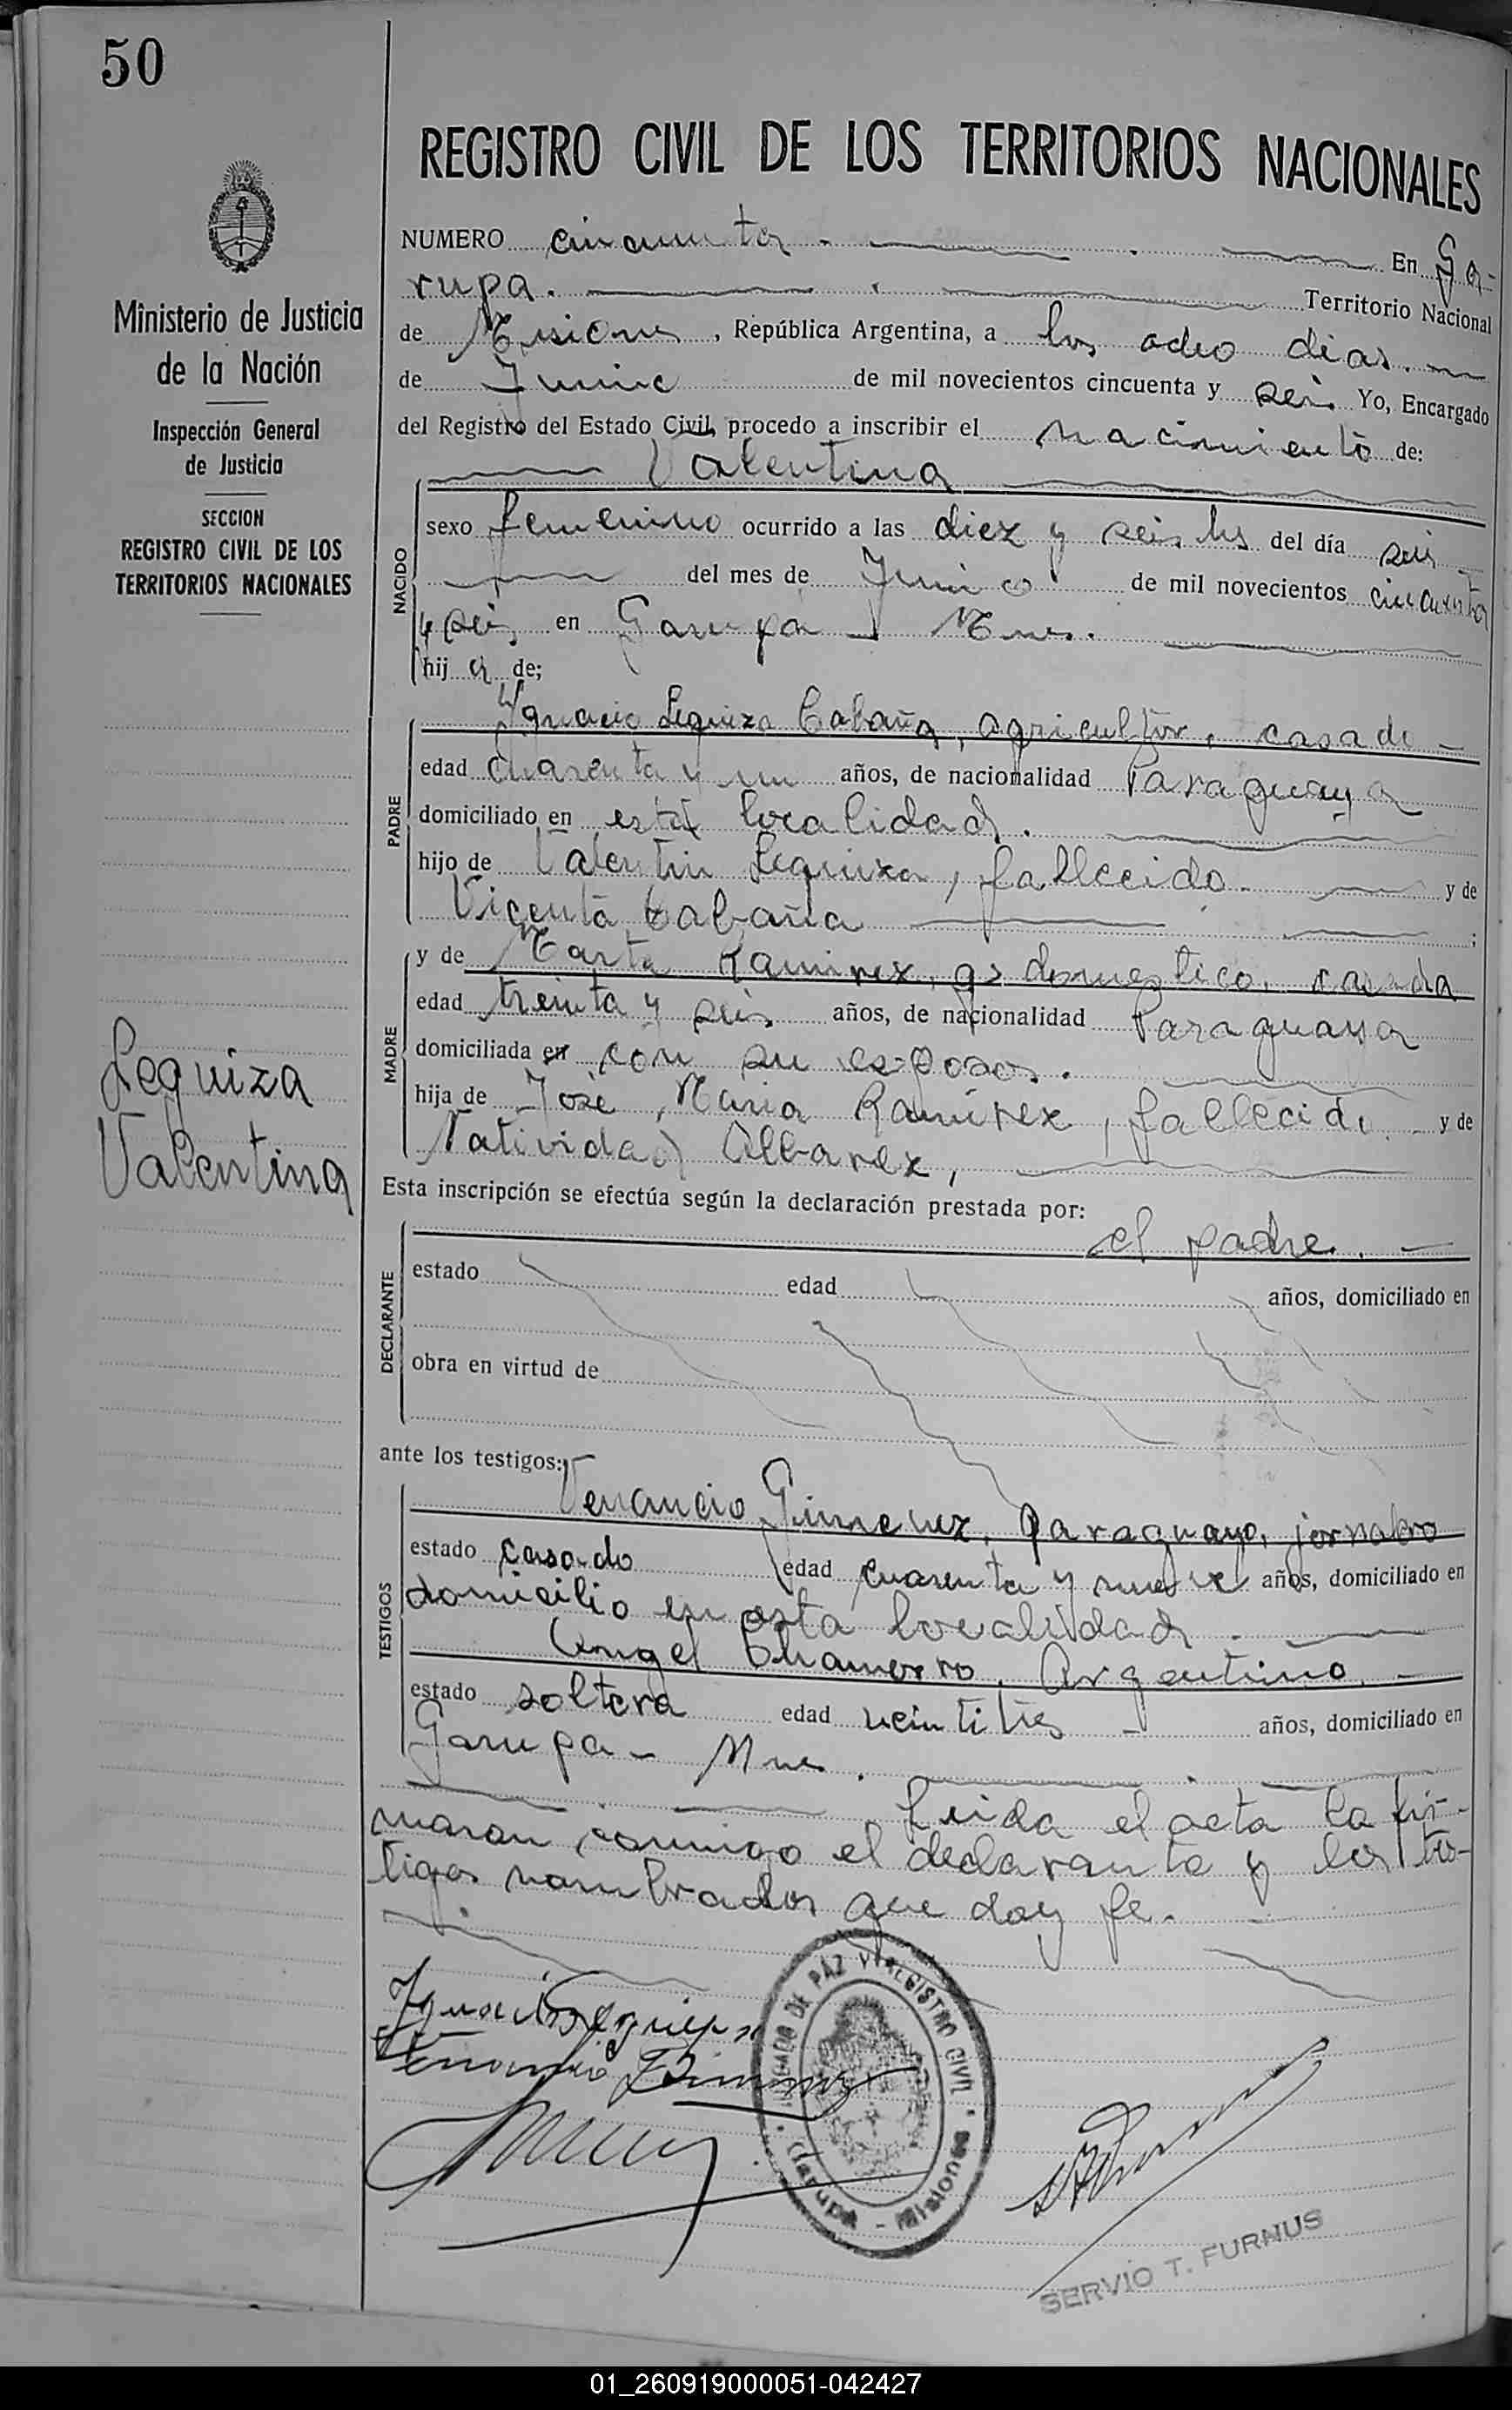 50
REGISTRO CIVIL DE LOS TERRITORIOS NACIONALES
Ministerio de Justicia
de la Nación
Inspección General
de Justicia
SECCION
REGISTRO CIVIL DE LOS
TERRITORIOS NACIONALES
Leguiza
Valentina
NUMERO cincuenta. En Ga-
rupa. Territorio Nacional
de Misiones, República Argentina, a los ocho dias.
de Junio de mil novecientos cincuenta y seis Yo, Encargado
del Registro del Estado Civil, procedo a inscribir el nacimiento de:
Valentina
NACIDO
sexo femenino ocurrido a las diez y seis hs del día seis
del mes de Junio de mil novecientos cincuenta
y seis en Garupa - Mnes.
hija de;
PADRE
Ygnacio Leguiza Cabaña, agricultor, casado -
edad cuarenta y un años, de nacionalidad Paraguaya
domiciliado en esta localidad.
hijo de Valentin Leguiza, fallecido y de
Vicenta Cabaña ;
MADRE
y de Marta Ramirez, qs domestico, casada
edad treinta y seis años, de nacionalidad Paraguaya
domiciliada en con su esposo.
hija de José Maria Ramirez, fallecido y de
Natividad Albarez,
Esta inscripción se efectúa según la declaración prestada por:
el padre. -
DECLARANTE
estado edad años, domiciliado en
obra en virtud de
ante los testigos:
TESTIGOS
Venancio Gimenez, paraguayo, jornalero
estado casado edad cuarenta y nueve años, domiciliado en
domicilio en esta localidad.
Angel Chamorro, Argentino. -
estado soltero edad veintitres - años, domiciliado en
Garupa - Mnes.
Leida el acta la fir-
maran conmigo el declarante y los tes-
tigos nombrados que doy fe.
Ygnacio Leguiza
Venancio Gimenez
JUZGADO DE PAZ Y REGISTRO CIVIL
Garupá - Misiones
SERVIO T. FURNUS
01_260919000051-042427